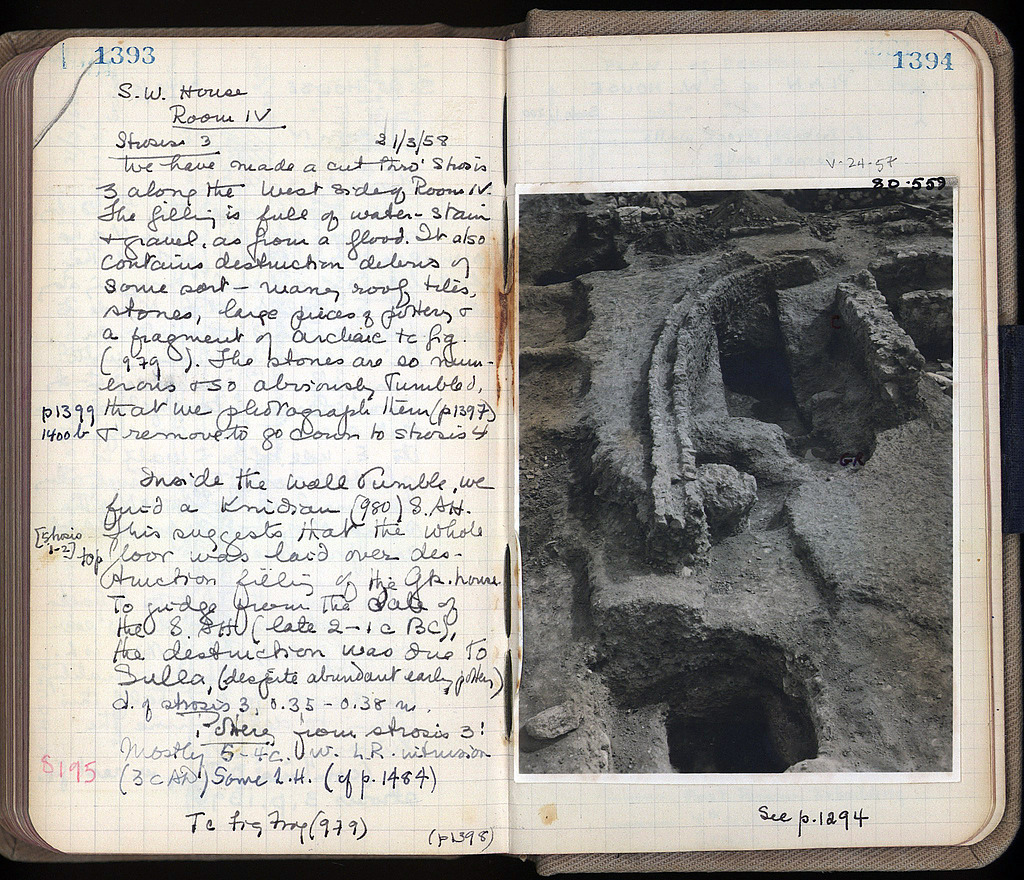 1393
S.W. House
Room IV
Strosis 3 21/3/58
We have made a cut thro' Strosis
3 along the West side of Room IV.
The filling is full of water-stain
+ gravel, as from a flood. It also
contains destruction debris of
some sort – many roof tiles,
stones, large pieces of pottery &
a fragment of archaic tc fig.
(979). The stones are so num-
erous & so obviously tumbled,
that we photograph them (p1397)
& remove to go down to strosis 4
p1399
1400b
Inside the wall tumble, we
find a Knidian (980) S. AH.
This suggests that the whole
[Strosis
1-2] top floor was laid over des-
truction filling of the Gk. house
To judge from the date of
the S. AH (late 2-1c BC),
the destruction was due to
Sulla, (despite abundant early pottery)
d. of strosis 3, 0.35 - 0.38 m.
Pottery from strosis 3:
Mostly 5-4c. w. L.R. intrusion
8195
(3c AD) Some L.H. (cf p. 1484)
Tc Fig Frag (979)
(p1398)
1394
V-24-57
80-559
GR
See p. 1294